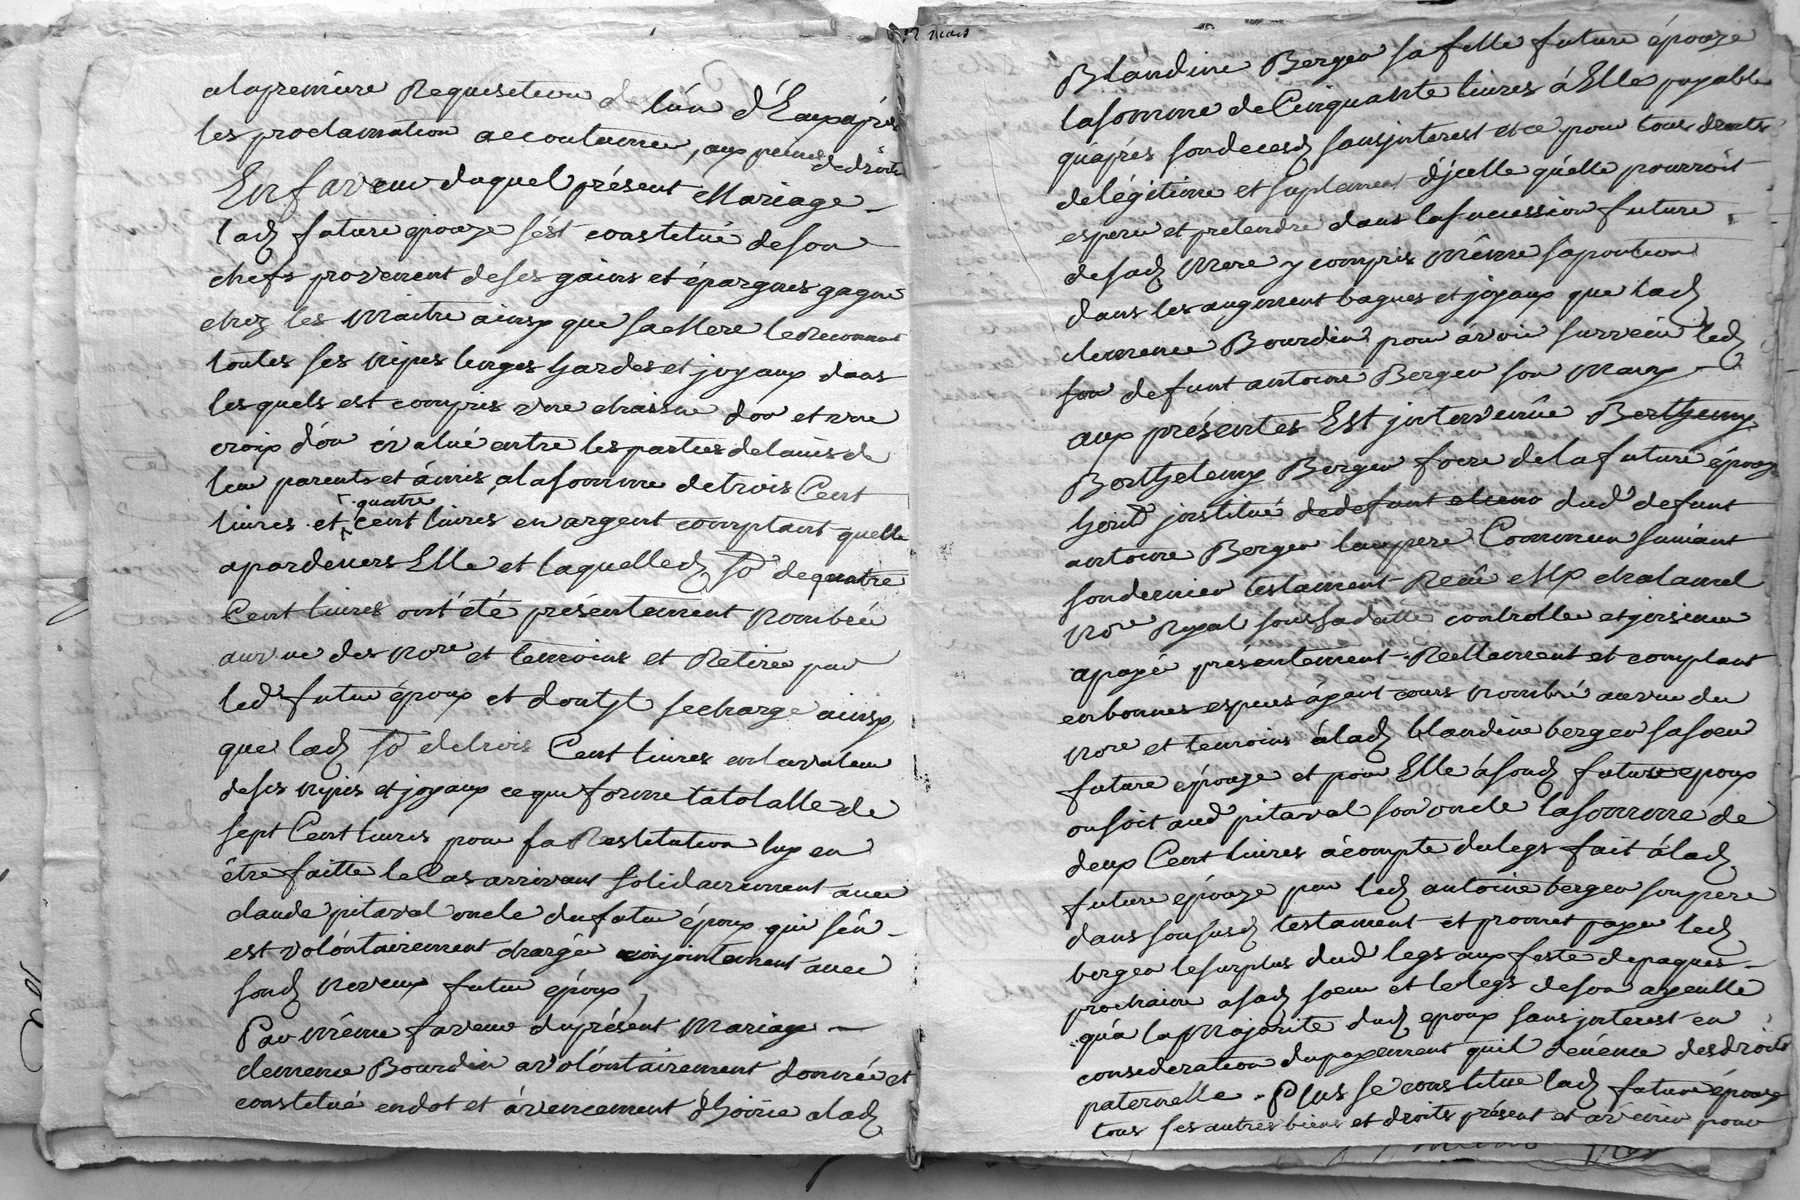 2 mars
alapremiere Requisition de l'un d'Eux après
les proclamation accoutumé, aux peines de droits
En faveur duquel présent Mariage
lad future epouze s'est constitué deson
chefs provenent deses gains et épargnes gagné
chez les Maitre ainsy que sa Mere lereconnoit
toutes ses nipes linges hardes et joyaux dans
lesquels est compris une chaisne d'or et une
croix d'or évalué entre les parties delavis de
leur parents et amis, alasomme detrois Cent
livres et quatre cent livres en argent comptant quelle
apardevers Elle et laquelled so dequatre
Cent livres ont été présentement nombré
auvue des nore et temoins et Retiré par
led futur époux et dontjl secharge ainsy
que lad so detrois Cent livres enlavaleur
deses nipes et joyaux ce qui forme la totalle de
sept Cent livres pour la Restitution luy en
être faitte le Cas arrivant solidairement avec
claude pitaval oncle du futur époux qui s'en
est volontairement chargé conjointement avec
sond neveux futur époux,
Par même faveur duprésent Mariage
clemence Bourdin a volontairement donné et
constitué endot et avencement d'hoirie alad
Blandine Berger sa fille future épouze
lasomme de Cinquante livres à Elle payable
qu'après sondeced sansjnterest et ce pour tous droits
delégitime et suplement d'jcelle qu'elle pourroit
esperer et pretendre dans lasucession future
desad Mere y compris même saportion
dans les augment bagues et joyaux que lad
clemence Bourdin pour avoir survecu led
feu defunt antoine Berger son Mary
aux présentes Est jntervenüe Berthemy
Berthelemy Berger frere delafuture épouze
herit jnstitué dedefunt dud defunt
antoine Berger leurpere Commun suivant
sondernier testament Recû Me chalamel
nore Royal soussadatte controllé etjnsinué
apayé présentement Reellement et comptant
enbonnes especes ayant cours nombré auvue du
nore et temoins àlad blandine berger sasoeur
future épouze et pour Elle àsond future epoux
ousoit aud pitaval son oncle lasomme de
deux Cent livres acompte dulegs fait àlad
future épouze par led antoine berger sonpere
dans sonsusd testament et promet payer led
berger lesurplus dud legs aux feste depaques
prochaine asad soeur et lelegs deson ayeulle
qu'a laMajorité dud epoux sansjnterest en
consideration dupayement quil denence desdroits
paternelle. Plus se constitue lad future épouze
tous ses autres biens et droits présent et avenir pour